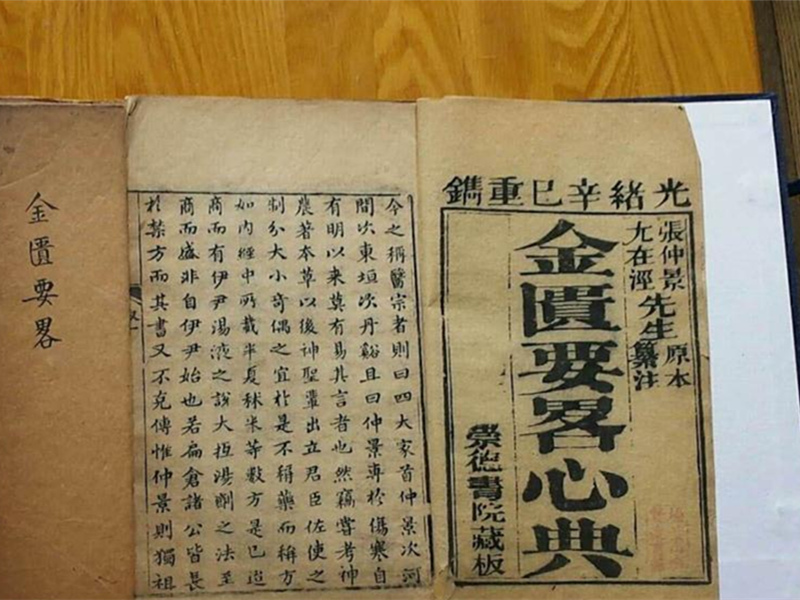 光緒辛巳重鐫
張仲景
尤在涇
先生
原本
纂注
金匱要畧心典
崇德書院藏板
今之稱醫宗者則曰四大家首仲景次河
間次東垣次丹谿且曰仲景專於傷寒自
有明以來莫有易其言者也然竊嘗考神
農著本草以後神聖輩出立君臣佐使之
制分大小奇偶之宜於是不稱藥而稱方
如内經中所載半夏秫米等數方是已迨
商而有伊尹湯液之說大抵湯劑之法至
商而盛非自伊尹始也若扁倉諸公皆長
於禁方而其書又不克傳惟仲景則獨祖
金匱要畧